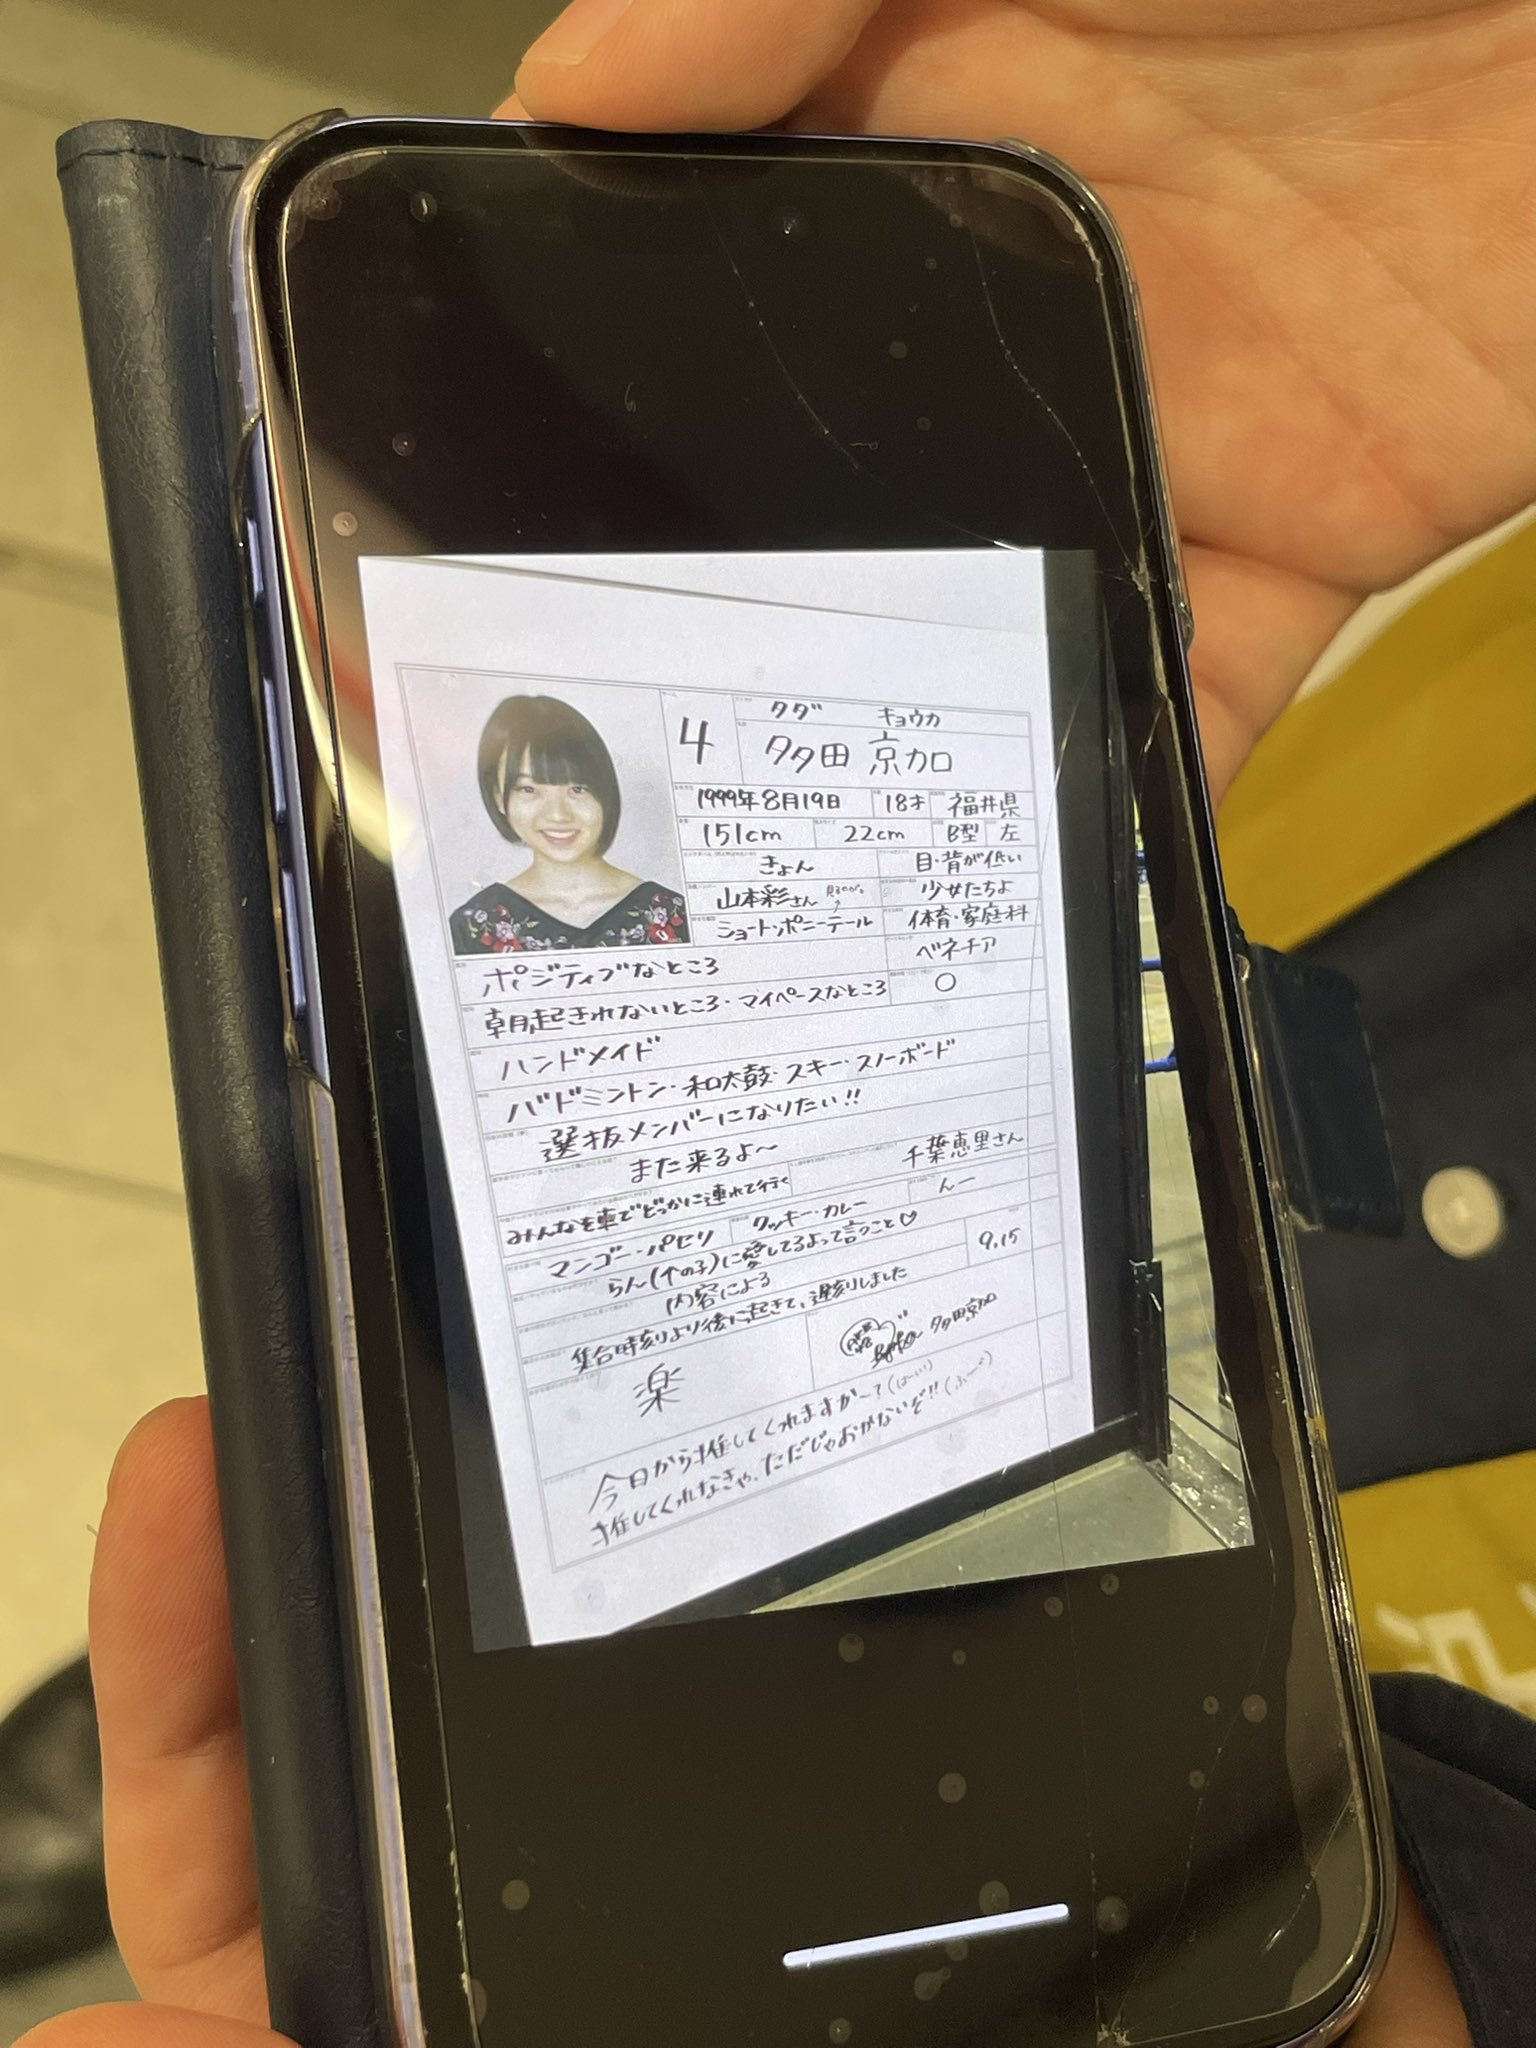 4
タダ キョウカ
多田 京加
1999年8月19日 18才 福井県
151cm 22cm B型 左
きょん 目・背が低い
山本彩さん 少女たちよ
ショート・ポニーテール 体育・家庭科
ベネチア
ポジティブなところ
朝起きれないところ・マイペースなところ ○
ハンドメイド
バドミントン・和太鼓・スキー・スノーボード
選抜メンバーになりたい!!
また来るよ〜 千葉恵里さん
みんなを車でどっかに連れて行く んー
マンゴー・パセリ クッキー・カレー
らん(犬の子)に愛してるよって言うこと♡ 9.15
内容による
集合時刻より後に起きて、遅刻しました
楽 多田京加
今日から推してくれますか〜?(はーい!)
推してくれなきゃ、ただじゃおかないぞ!!(ふ〜)